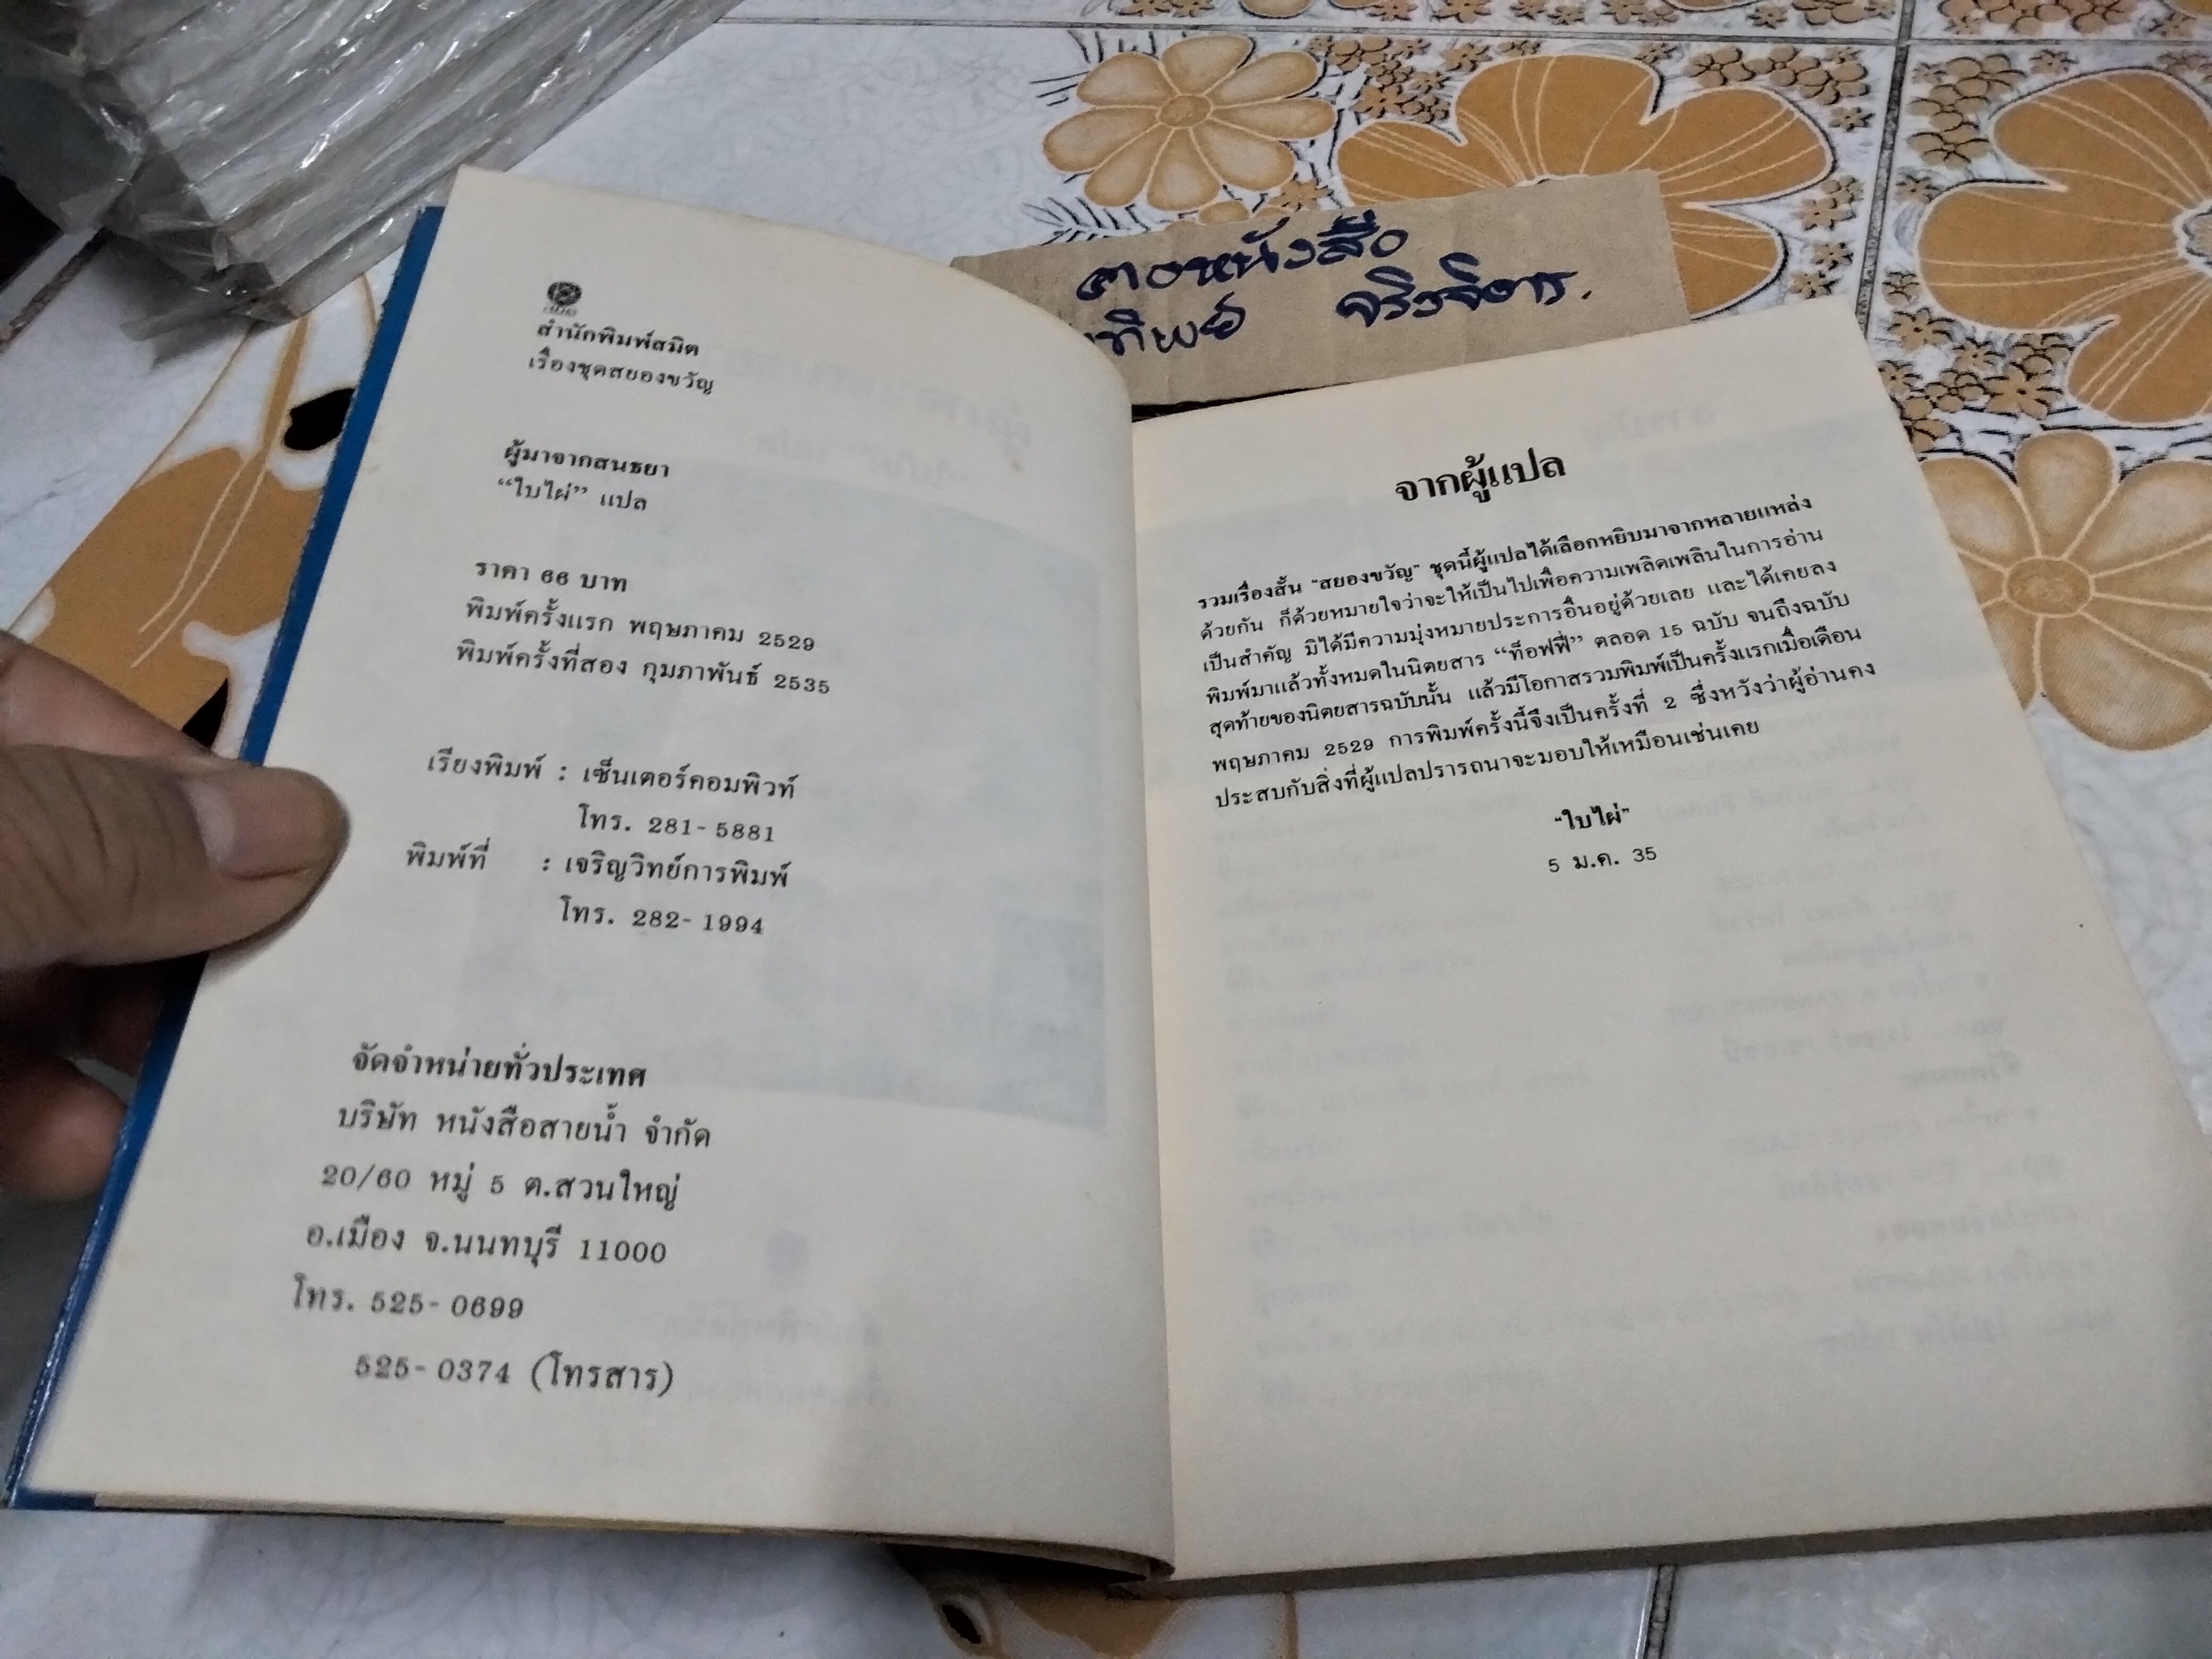 สำนักพิมพ์สมิต
เรื่องชุดสยองขวัญ
ผู้มาจากสนธยา
“ใบไผ่” แปล
ราคา 66 บาท
พิมพ์ครั้งแรก พฤษภาคม 2529
พิมพ์ครั้งที่สอง กุมภาพันธ์ 2535
เรียงพิมพ์ : เซ็นเตอร์คอมพิวท์
โทร. 281-5881
พิมพ์ที่ : เจริญวิทย์การพิมพ์
โทร. 282-1994
จัดจำหน่ายทั่วประเทศ
บริษัท หนังสือสายน้ำ จำกัด
20/60 หมู่ 5 ต.สวนใหญ่
อ.เมือง จ.นนทบุรี 11000
โทร. 525-0699
525-0374 (โทรสาร)
หนังสือ
ทิพย์ จริงจิตร.
จากผู้แปล
รวมเรื่องสั้น “สยองขวัญ” ชุดนี้ผู้แปลได้เลือกหยิบมาจากหลายแหล่ง
ด้วยกัน ก็ด้วยหมายใจว่าจะให้เป็นไปเพื่อความเพลิดเพลินในการอ่าน
เป็นสำคัญ มิได้มีความมุ่งหมายประการอื่นอยู่ด้วยเลย และได้เคยลง
พิมพ์มาแล้วทั้งหมดในนิตยสาร “ท็อฟฟี่” ตลอด 15 ฉบับ จนถึงฉบับ
สุดท้ายของนิตยสารฉบับนั้น แล้วมีโอกาสรวมพิมพ์เป็นครั้งแรกเมื่อเดือน
พฤษภาคม 2529 การพิมพ์ครั้งนี้จึงเป็นครั้งที่ 2 ซึ่งหวังว่าผู้อ่านคง
ประสบกับสิ่งที่ผู้แปลปรารถนาจะมอบให้เหมือนเช่นเคย
“ใบไผ่”
5 ม.ค. 35